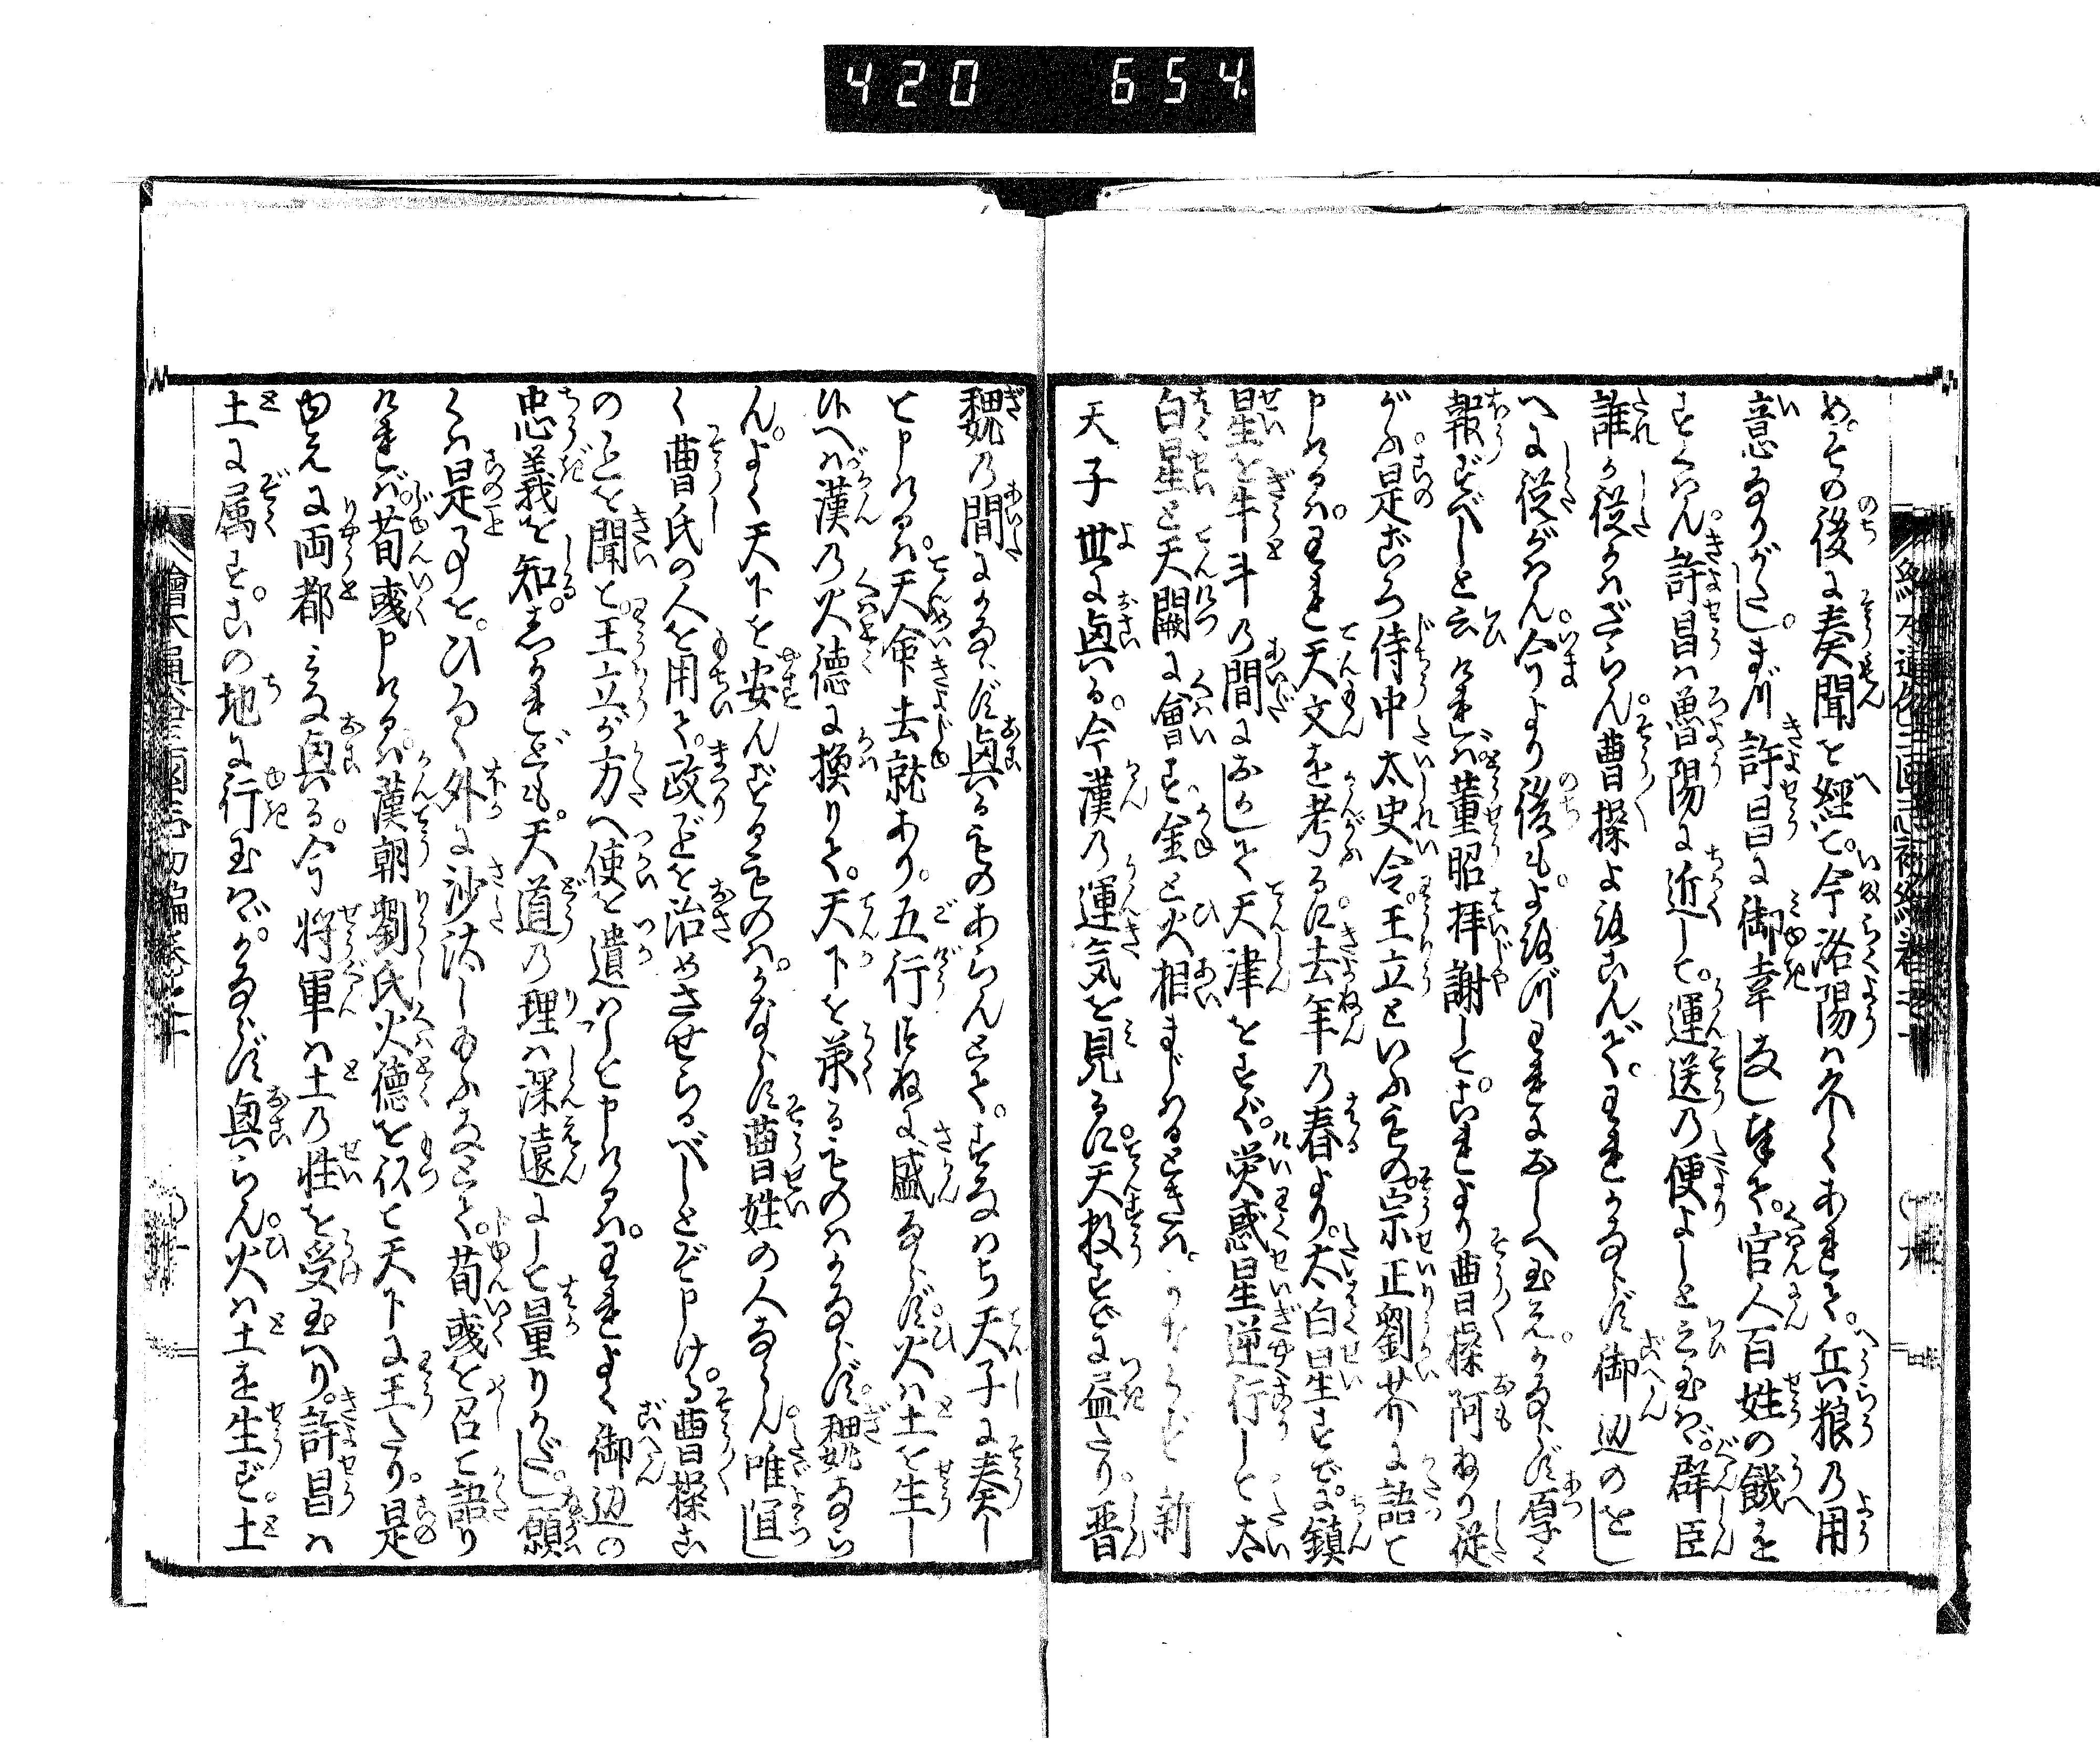 420 654
め。その後に奏聞を経て。今洛陽ハ久しくあれて。兵粮の用
意なりがたし。まづ許昌に御幸なし奉て。官人百姓の餓を
すくハん。許昌ハ魯陽に近して。運送の便よしと云玉ハゞ。群臣
誰か従かハざらん。曹操よろこんで。われかならず御辺のをし
へに従がハん。今より後も。よろづわれにおしへ玉え。かならず厚く
報ずべしと云けれバ。董昭拝謝して。これより曹操阿ねり従
がふ。是ころ侍中太史令。王立といふもの。宗正劉艾に語て
申けるハ。われ天文を考るに。去年の春より。太白星すでに鎮
星を牛斗の間におかして。天津をすぐ。熒惑星逆行して太
白星と天関に會す。金と火相まじハるときハ。かならず新
天子世に興る。今漢の運気を見るに。天数すでに益たり。晋
魏の間にかならず興るものあらんとて。すなハち天子に奏し
と申けるハ。天命去就あり。五行つねに盛ならず。火ハ土を生し
いへハ漢の火徳に換りて。天下を兼るものハかならず。魏なら
ん。よく天下を安んずるものハ。かならず曹姓の人ならん。唯宜し
く曹氏の人を用て。政道を治めさせらるべしとぞ申ける。曹操こ
のことを聞て。王立が方へ使を遣ハして申けるハ。われよく御辺の
忠義を知る。しかれども。天道の理ハ深遠にして量りがたし。願
くハ是事を。ひろく外に沙汰し玉ふなとて。荀彧を召て語り
けれバ。荀彧申けるハ。漢朝劉氏火徳を以て天下に王たり。是
ゆえに両都に興る。今将軍ハ土の性を受玉へり。許昌ハ
土に属す。この地に行玉ハゞ。かならず興らん。火ハ土を生ず。土